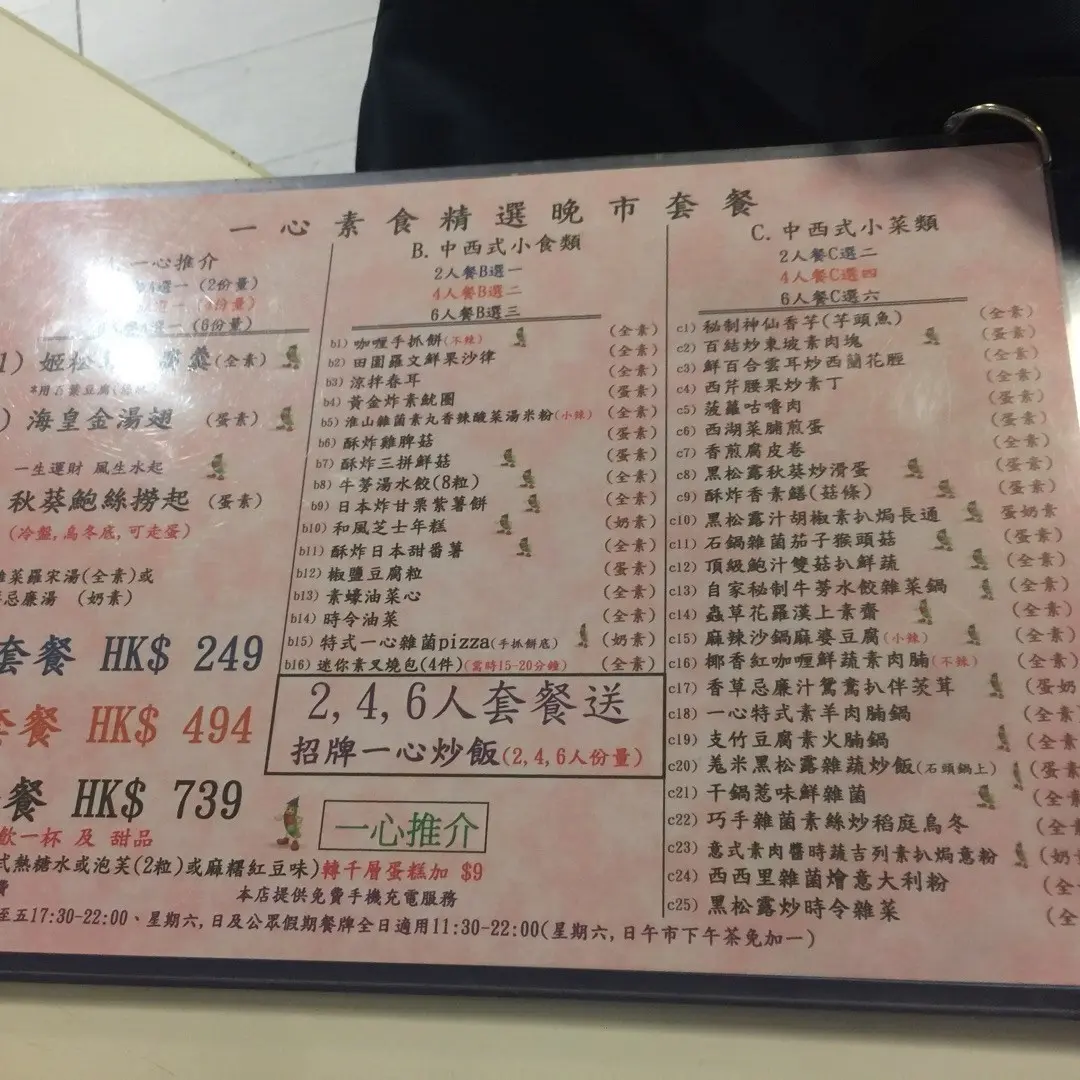 一心素食精選晚市套餐
一心推介
選一 (2份量)
一 (6份量)
(全素)
海皇金湯翅 (蛋素)
一生運財 風生水起
秋葵鮑絲撈起 (蛋素)
(冷盤,烏冬底,可走蛋)
菜羅宋湯(全素)或
忌廉湯 (奶素)
套餐 HK$ 249
套餐 HK$ 494
餐 HK$ 739
飲一杯 及 甜品
式熱糖水或泡芙(2粒)或麻糬紅豆味)轉千層蛋糕加 $9
費 本店提供免費手機充電服務
至五17:30-22:00、星期六,日及公眾假期餐牌全日適用11:30-22:00(星期六,日午市下午茶免加一)
B.中西式小食類
2人餐B選一
4人餐B選二
6人餐B選三
b1) 咖喱手抓餅(不辣) (全素)
b2) 田園羅文鮮果沙律 (全素)
b3) 涼拌春耳 (全素)
b4) 黃金炸素魷圈 (蛋素)
b5) 淮山雜菌素丸香辣酸菜湯米粉(小辣) (全素)
b6) 酥炸雞脾菇 (蛋素)
b7) 酥炸三拼鮮菇 (蛋素)
b8) 牛蒡湯水餃(8粒) (全素)
b9) 日本炸甘栗紫薯餅 (全素)
b10) 和風芝士年糕 (奶素)
b11) 酥炸日本甜番薯 (全素)
b12) 椒鹽豆腐粒 (蛋素)
b13) 素蠔油菜心 (全素)
b14) 時令油菜 (全素)
b15) 特式一心雜菌pizza(手抓餅底) (奶素)
b16) 迷你素叉燒包(4件)(需時15-20分鐘) (全素)
2,4,6人套餐送
招牌一心炒飯(2,4,6人份量)
一心推介
C.中西式小菜類
2人餐C選二
4人餐C選四
6人餐C選六
c1) 秘制神仙香芋(芋頭魚) (全素)
c2) 百結炒東坡素肉塊 (蛋素)
c3) 鮮百合雲耳炒西蘭花脛 (全素)
c4) 西芹腰果炒素丁 (全素)
c5) 菠蘿咕嚕肉 (蛋素)
c6) 西湖菜脯煎蛋 (蛋素)
c7) 香煎腐皮卷 (全素)
c8) 黑松露秋葵炒滑蛋 (蛋素)
c9) 酥炸香素鱔(菇條) (蛋素)
c10) 黑松露汁胡椒素扒焗長通 蛋奶素
c11) 石鍋雜菌茄子猴頭菇 (蛋素)
c12) 頂級鮑汁雙菇扒鮮蔬 (全素)
c13) 自家秘制牛蒡水餃雜菜鍋 (全素)
c14) 蟲草花羅漢上素齋 (全素)
c15) 麻辣沙鍋麻婆豆腐(小辣) (全素)
c16) 椰香紅咖喱鮮蔬素肉腩(不辣) (全素)
c17) 香草忌廉汁鴛鴦扒伴茨茸 (蛋奶
c18) 一心特式素羊肉腩鍋 (全素
c19) 支竹豆腐素火腩鍋 (全素
c20) 羗米黑松露雜蔬炒飯(石頭鍋上) (蛋素
c21) 干鍋惹味鮮雜菌 (全素
c22) 巧手雜菌素絲炒稻庭烏冬 (全素
c23) 意式素肉醬時蔬吉列素扒焗意粉 (奶
c24) 西西里雜菌燴意大利粉 (全
c25) 黑松露炒時令雜菜 (全